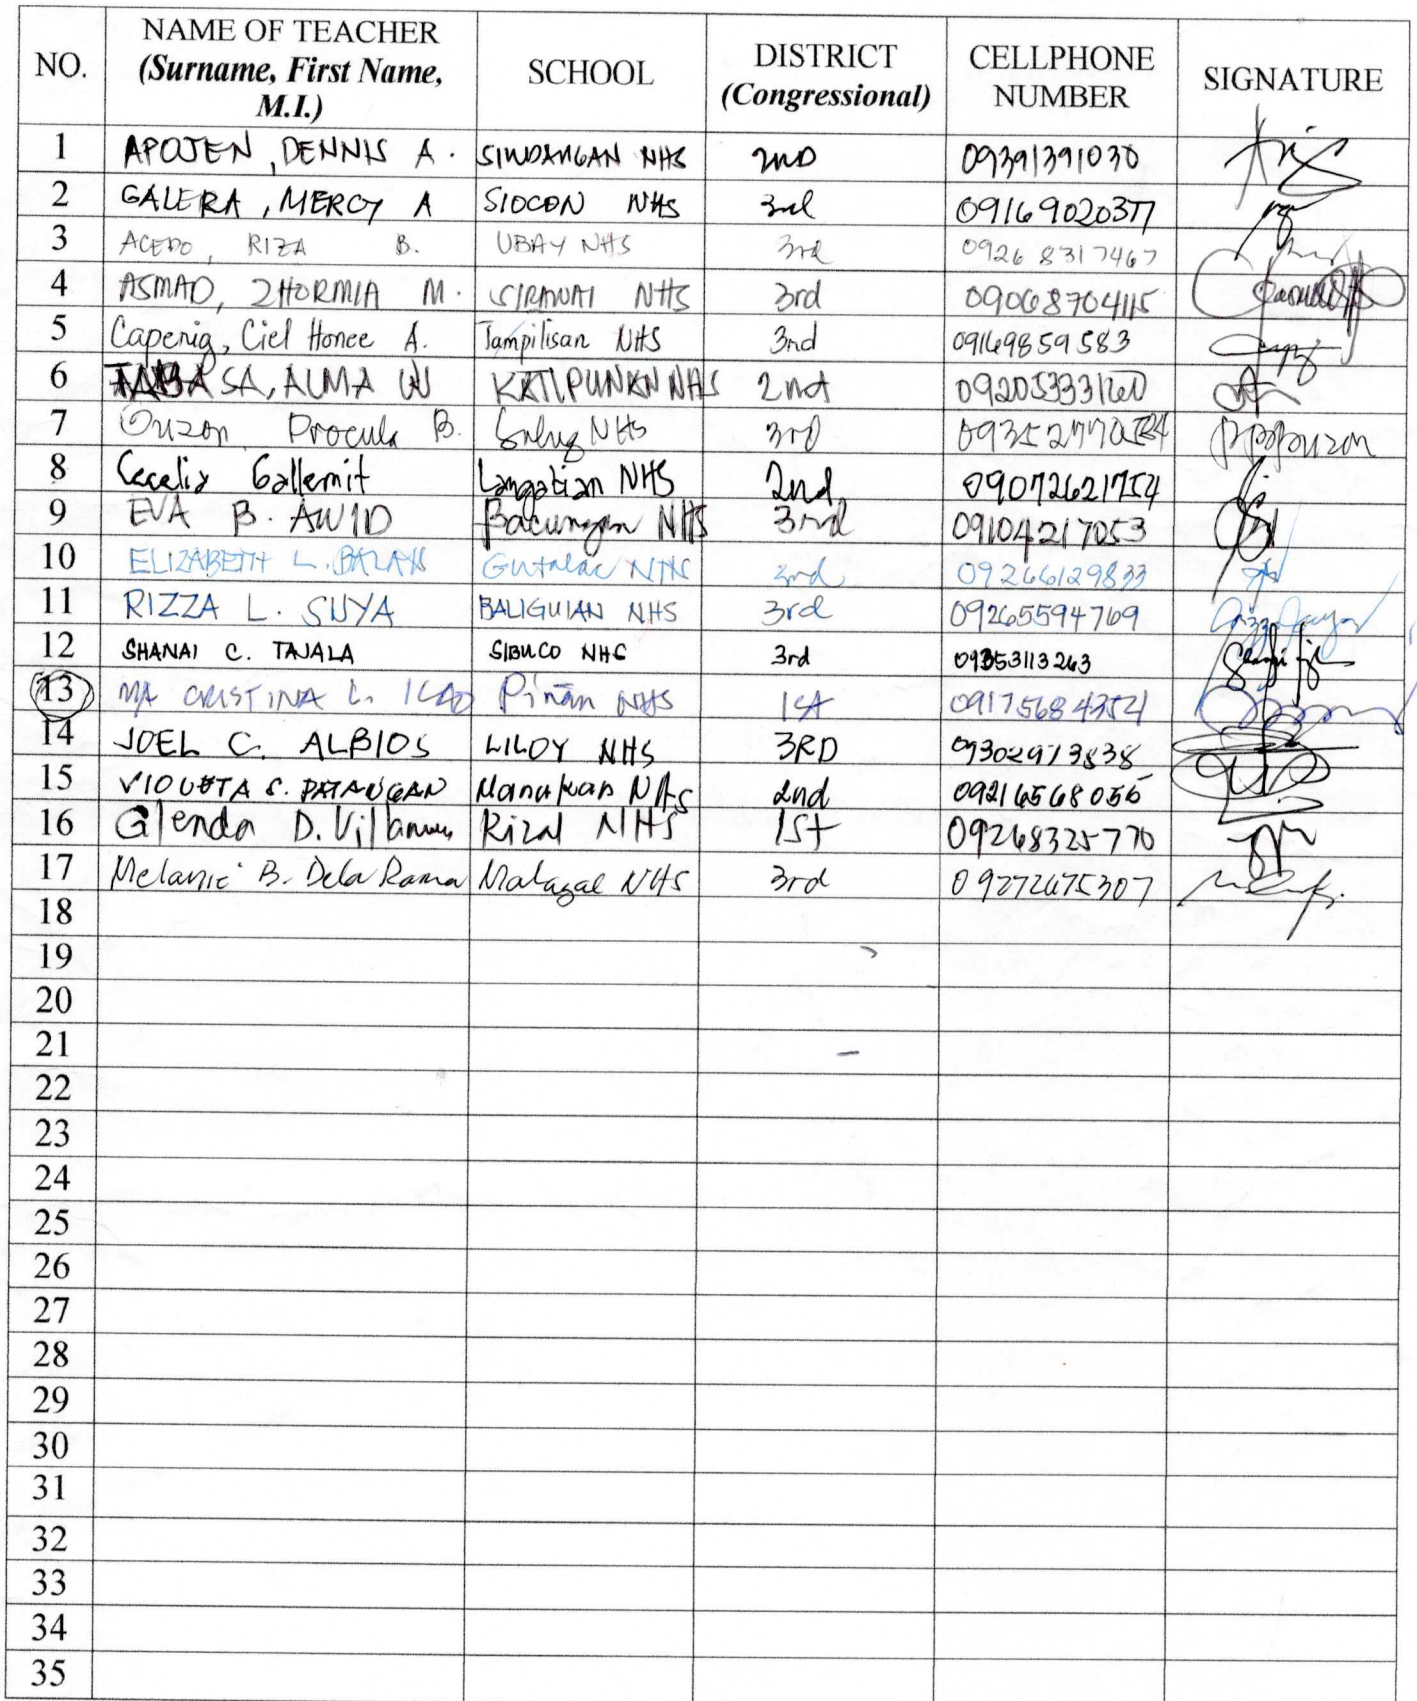 NO. NAME OF TEACHER (Surname, First Name, M.I.) SCHOOL DISTRICT (Congressional) CELLPHONE NUMBER SIGNATURE
1 APOJEN, DENNIS A. SINDANGAN NHS 2ND 09391391030
2 GALERA, MERCY A SIOCON NHS 3rd 09169020377
3 ACEDO, RIZA B. UBAY NHS 3rd 0926 8317467
4 ASMAD, ZHORMIA M. SIRAWAI NHS 3rd 09068704115
5 Caperig, Ciel Honee A. Tampilisan NHS 3rd 09169859583
6 SA, ALMA W KATIPUNAN NHS 2nd
7 Ouzon Procula B. NHS 3rd
8 Cecelia Gallemit Langatian NHS 2nd 09072621754
9 EVA B. AWID Bacungan NHS 3rd 09104217053
10 ELIZABETH L. Gutalac NHS 3rd 09266129833
11 RIZZA L. SUYA BALIGUIAN NHS 3rd 09265594769
12 SHANAI C. TAJALA SIBUCO NHS 3rd 09353113263
13 MA CRISTINA L. Piñan NHS 1st 09175684354
14 JOEL C. ALBIOS LILOY NHS 3RD 09302973838
15 VIOLETA S. PATANGAN Manukan NHS 2nd 09216568056
16 Glenda D. Rizal NHS 1st 09268325770
17 Melanie B. Dela Rama Malagal NHS 3rd 09272675307
18
19
20
21
22
23
24
25
26
27
28
29
30
31
32
33
34
35